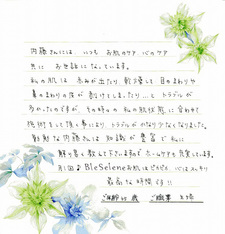 内藤さんには、いつもお肌のケア 心のケア
共に お世話になっています。
私の肌は 赤みが出たり、乾燥して 目のまわりや
鼻のまわりの皮が剥けてしまったり…と トラブルが
多かったのですが、その時々の 私の肌状態に合わせて
施術をして頂く事により、トラブルが少なくなりました。
勉強な内藤さんは 知識が豊富で 私に
解り易く教えて下さいますので ホームケアも充実しています。
月1回♪BleSeleneお肌はピカピカ、心はスッキリ
最高な時間です!!
ご年齢 歳 ご職業 主婦